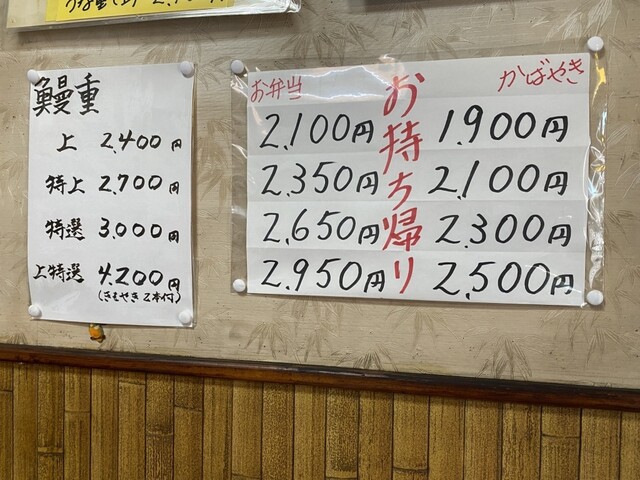 鰻重
上 2,400円
特上 2,700円
特選 3,000円
上特選 4,200円
(きもやき2本付)
お持ち帰り
お弁当
2,100円
2,350円
2,650円
2,950円
かばやき
1,900円
2,100円
2,300円
2,500円